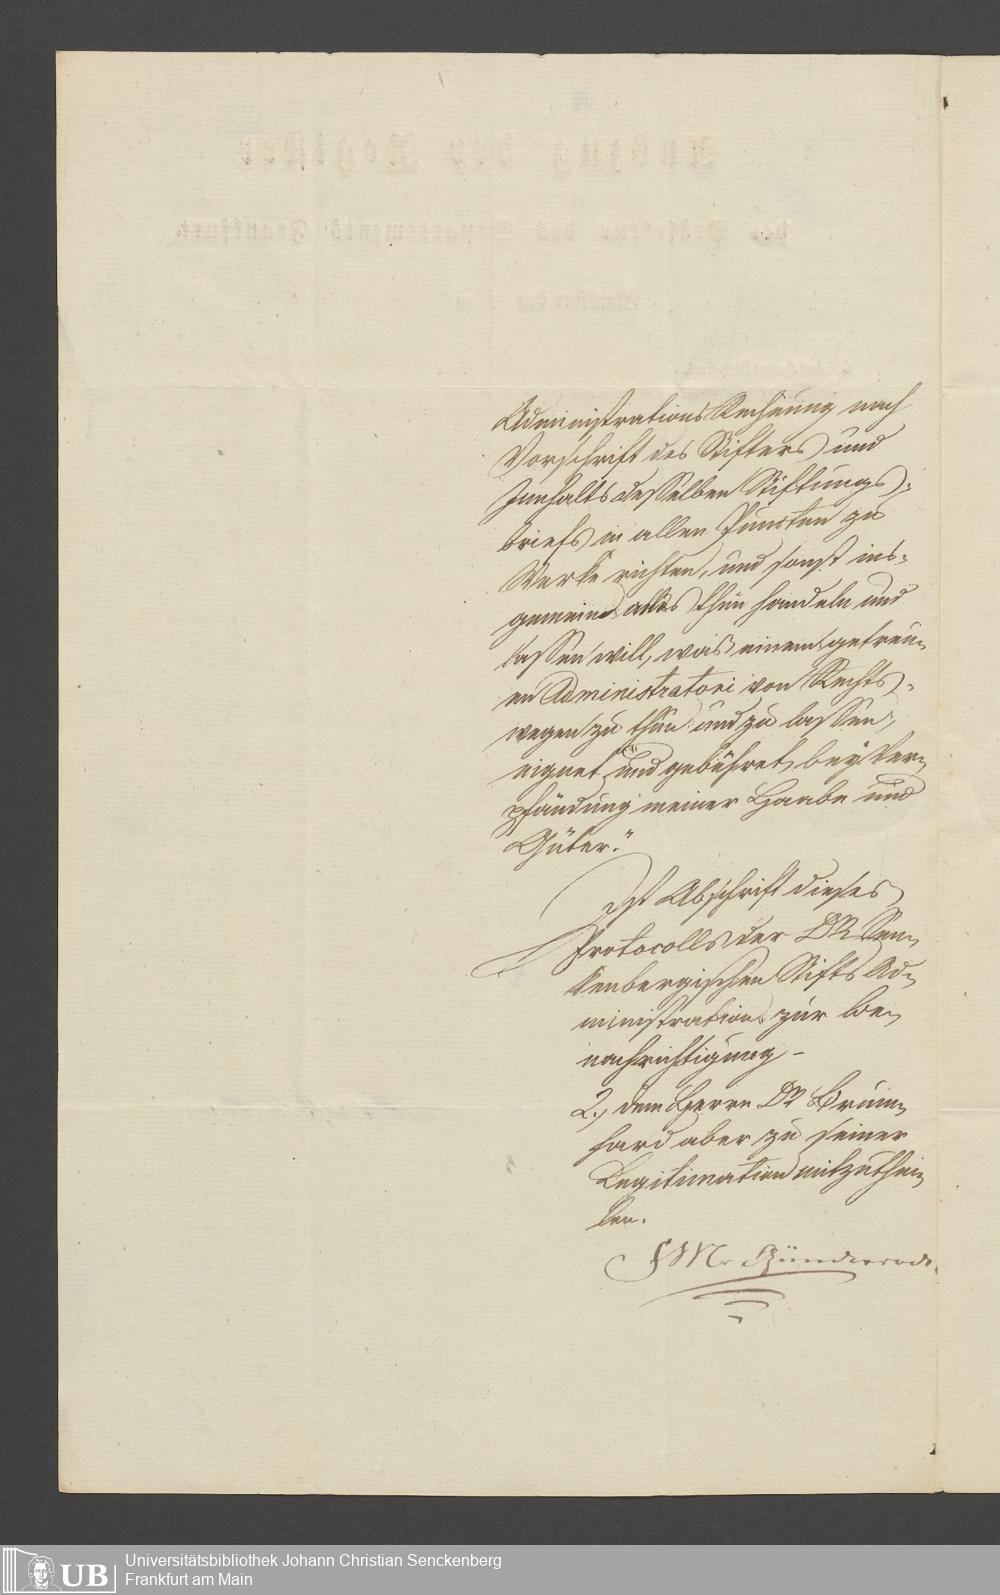 Administrations Rechnung nach
Vorschrift des Stifters und
Innhalts desselben Stiftungs-
briefs in allen Puncten zu
Werke richten, und sonst ins-
gemein alles thun handeln und
lassen will, was einem getreu-
en Administratori von Rechts-
wegen zu thun und zu lassen,
eignet und gebühret, bey Ver-
pfändung meiner Haabe und
Güter."
Ist Abschrift dieses
Protocolls der DR Sen-
kenbergischen Stifts Ad-
ministration zur Be-
nachrichtigung –
2., dem Herrn DR
hard aber zu seiner
Legitimation mitzuthei-
len.
Günderrode.
UB
Universitätsbibliothek Johann Christian Senckenberg
Frankfurt am Main